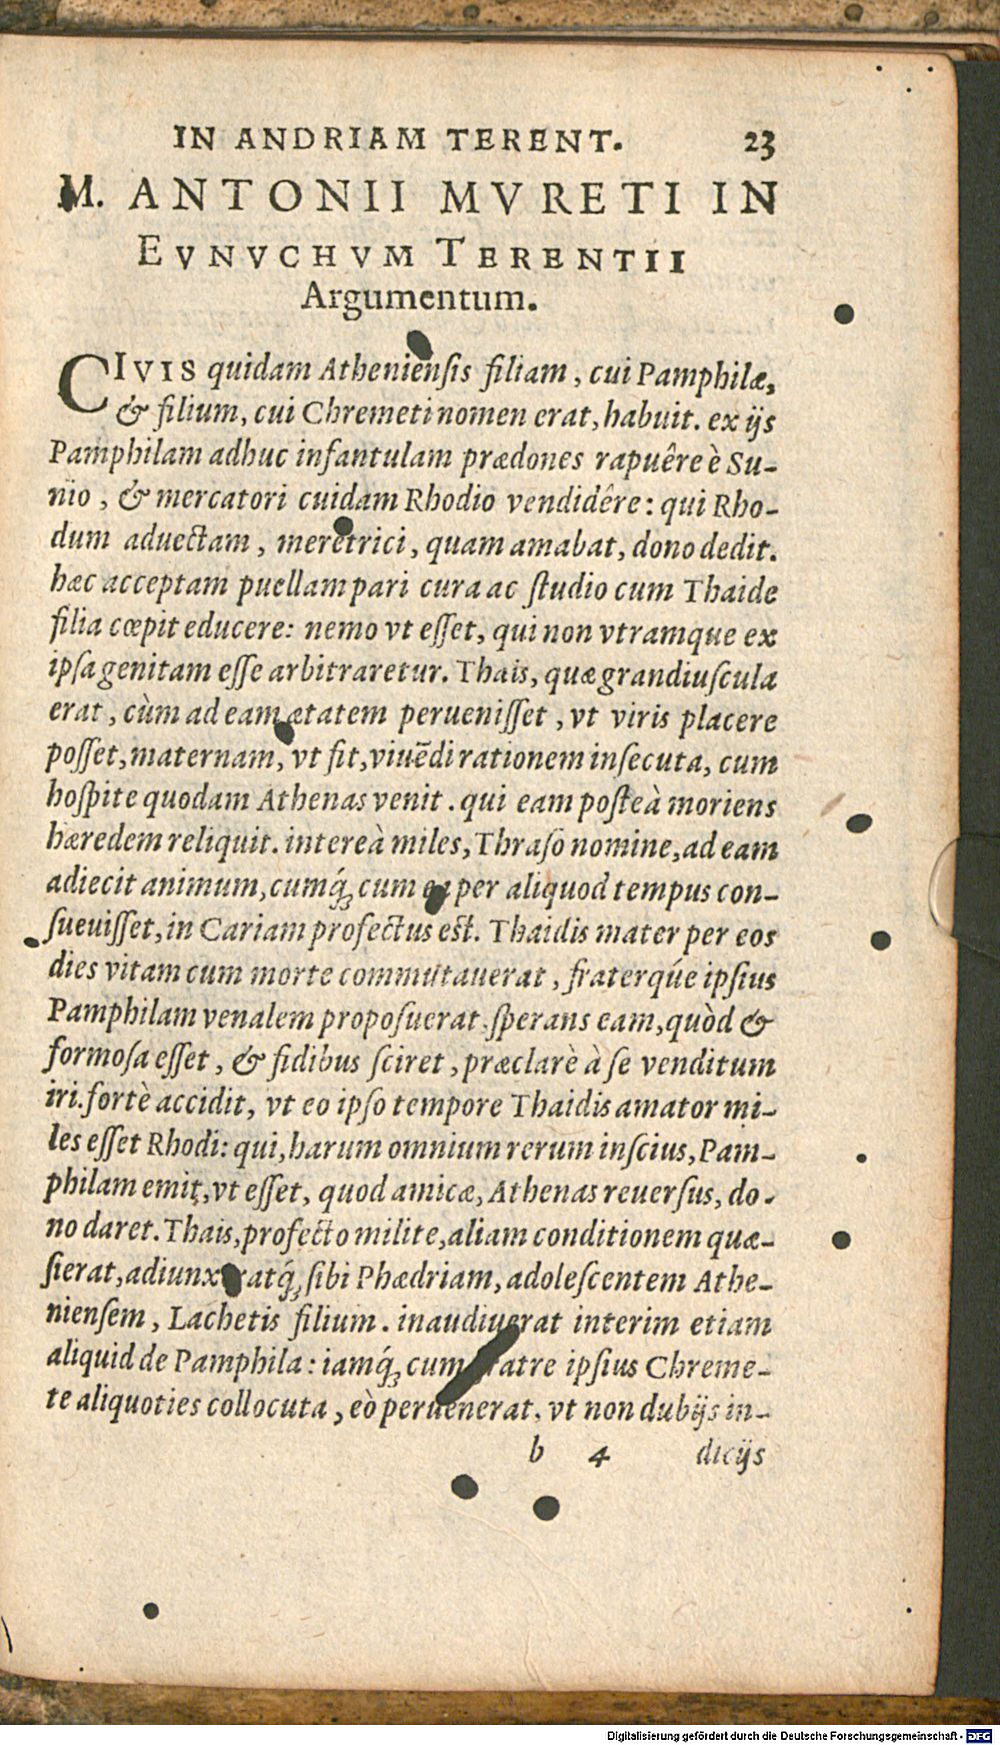 IN ANDRIAM TERENT. 23
M. ANTONII MVRETI IN
EVNVCHVM TERENTII
Argumentum.
CIVIS quidam Atheniensis filiam, cui Pamphilæ,
& filium, cui Chremeti nomen erat, habuit. ex ijs
Pamphilam adhuc infantulam prædones rapuêre è Su-
nio, & mercatori cuidam Rhodio vendidêre: qui Rho-
dum aduectam, meretrici, quam amabat, dono dedit.
hæc acceptam puellam pari cura ac studio cum Thaide
filia cœpit educere: nemo vt esset, qui non vtramque ex
ipsa genitam esse arbitraretur. Thais, quæ grandiuscula
erat, cùm ad eam ætatem peruenisset, vt viris placere
posset, maternam, vt fit, viuẽdi rationem insecuta, cum
hospite quodam Athenas venit. qui eam posteà moriens
hæredem reliquit. intereà miles, Thraso nomine, ad eam
adiecit animum, cumq́; cum ea per aliquod tempus con-
sueuisset, in Cariam profectus est. Thaidis mater per eos
dies vitam cum morte commutauerat, fraterq́ue ipsius
Pamphilam venalem proposuerat. sperans eam, quòd &
formosa esset, & fidibus sciret, præclarè à se venditum
iri. fortè accidit, vt eo ipso tempore Thaidis amator mi-
les esset Rhodi: qui, harum omnium rerum inscius, Pam-
philam emit, vt esset, quod amicæ, Athenas reuersus, do-
no daret. Thais, profecto milite, aliam conditionem quæ-
sierat, adiunxeratq́; sibi Phædriam, adolescentem Athe-
niensem, Lachetis filium. inaudiuerat interim etiam
aliquid de Pamphila: iamq́; cum fratre ipsius Chreme-
te aliquoties collocuta, eò peruenerat, vt non dubijs in-
b 4 dicijs
Digitalisierung gefördert durch die Deutsche Forschungsgemeinschaft - DFG